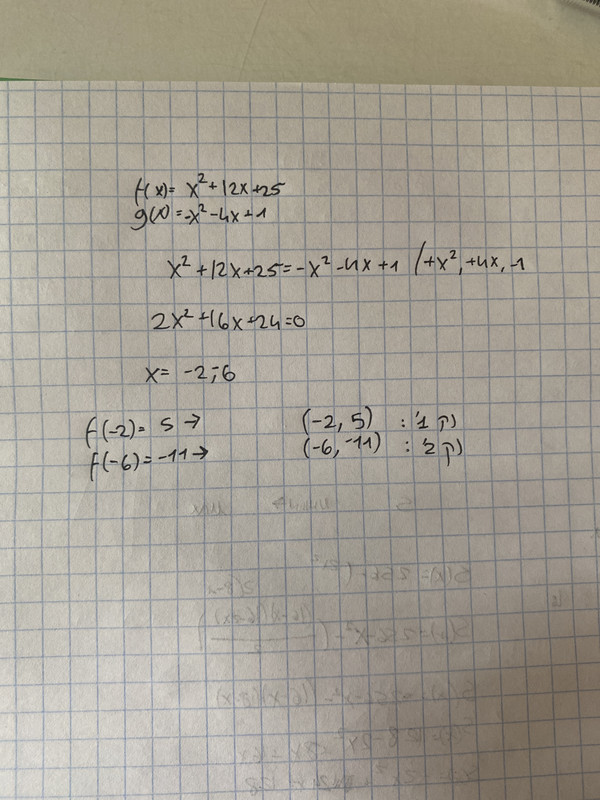 f(x)= x²+12x+25
g(x)=-x²-4x+1
x²+12x+25=-x²-4x+1 /+x²,+4x,-1
2x²+16x+24=0
x= -2,-6
f(-2)= 5 → (-2, 5) : נק 1'
f(-6)=-11→ (-6, -11) : נק 2'